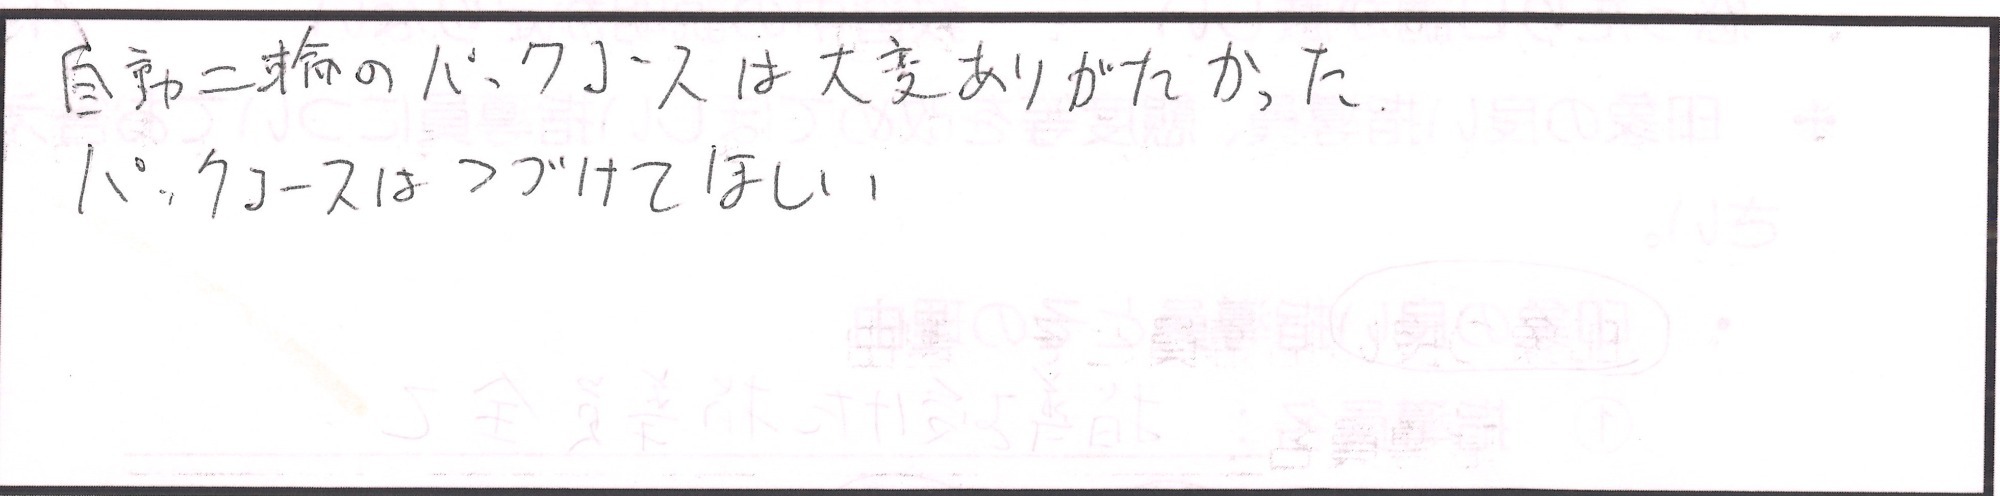 自動二輪のパックコースは大変ありがたかった.
パックコースはつづけてほしい